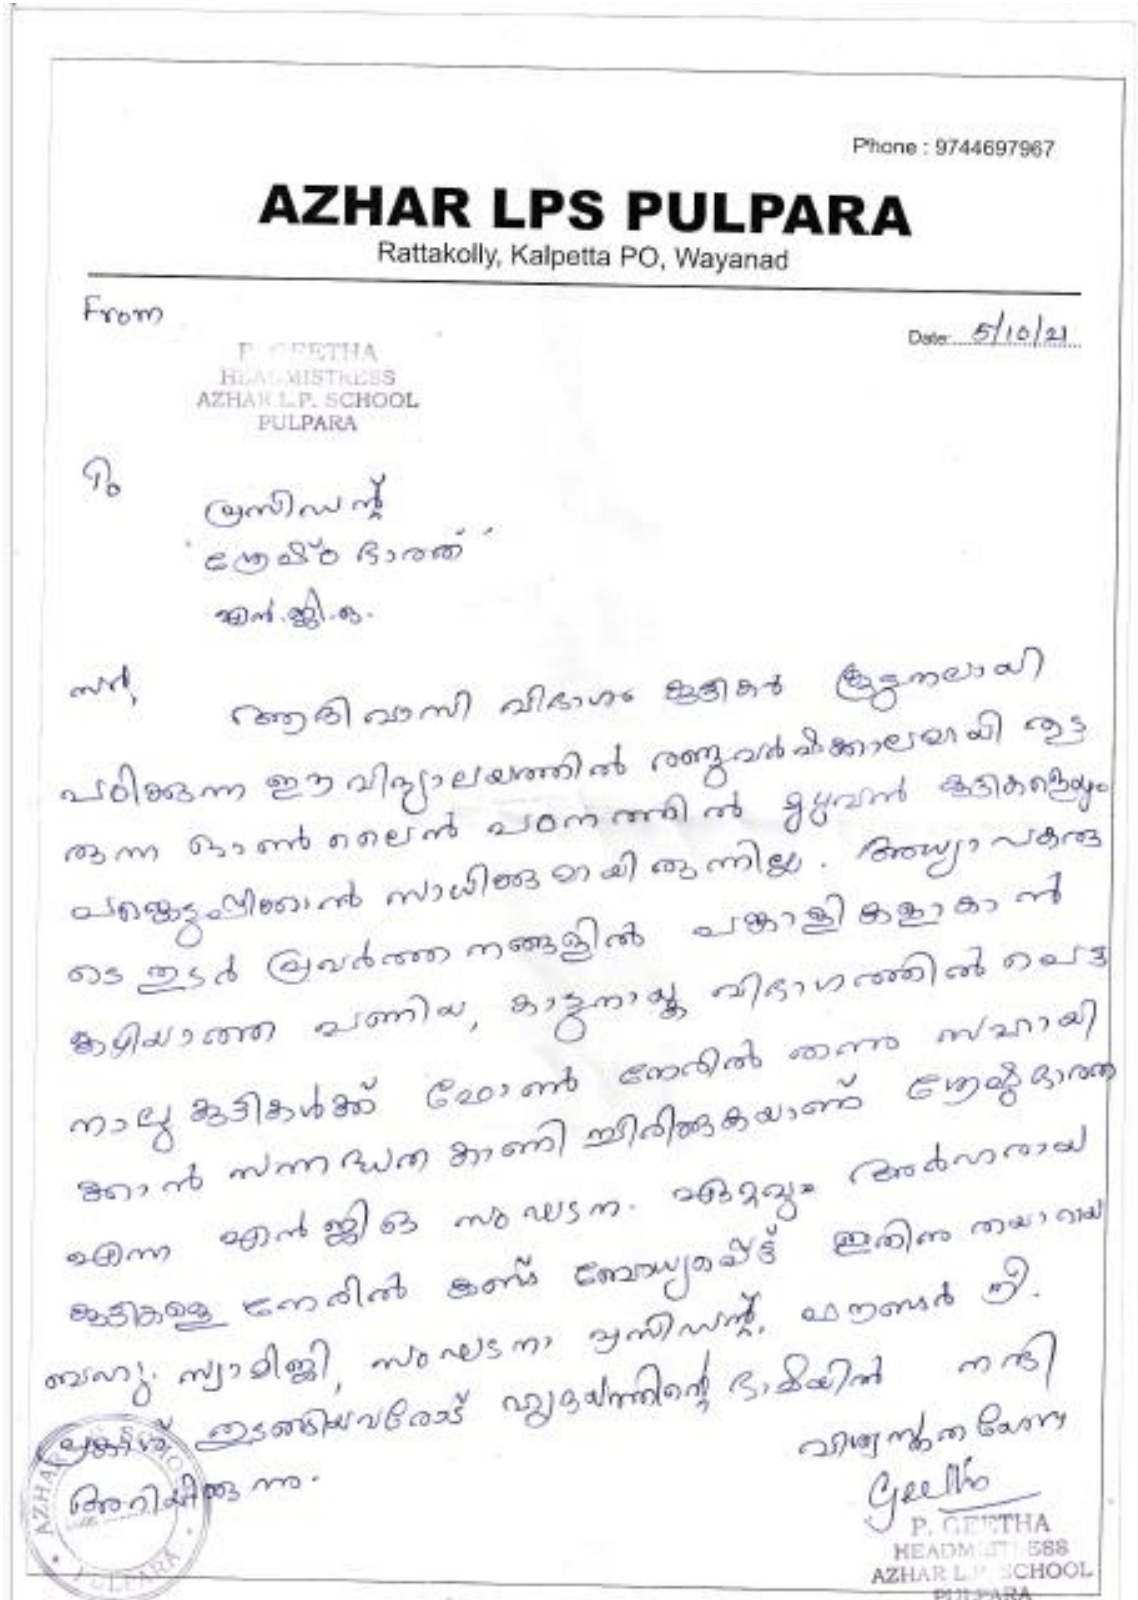 Phone : 9744697967
AZHAR LPS PULPARA
Rattakolly, Kalpetta PO, Wayanad
From
Date: 5/10/21
P. GEETHA
HEADMISTRESS
AZHAR L.P. SCHOOL
PULPARA
To
പ്രസിഡന്റ്
'ശ്രേഷ്ഠ ഭാരത്'
എൻ.ജി.ഒ.
സർ,
ആദിവാസി വിഭാഗം കുട്ടികൾ കൂടുതലായി
പഠിക്കുന്ന ഈ വിദ്യാലയത്തിൽ രണ്ടുവർഷക്കാലമായി തുട
രുന്ന ഓൺലൈൻ പഠനത്തിൽ മുഴുവൻ കുട്ടികളെയും
പങ്കെടുപ്പിക്കാൻ സാധിക്കുമായിരുന്നില്ല. അധ്യാപകരു
ടെ തുടർ പ്രവർത്തനങ്ങളിൽ പങ്കാളികളാകാൻ
കഴിയാത്ത പണിയ, കാട്ടുനായ്ക്ക വിഭാഗത്തിൽ പെട്ട
നാലു കുട്ടികൾക്ക് ഫോൺ നേരിൽ തന്നു സഹായി
ക്കാൻ സന്നദ്ധത കാണിച്ചിരിക്കുകയാണ് ശ്രേഷ്ഠഭാരത
എന്ന എൻജിഒ സംഘടന. ഏറ്റവും അർഹരായ
കുട്ടികളെ നേരിൽ കണ്ട് ബോധ്യപ്പെട്ട് ഇതിനു തയാറായ
ബഹു. സ്വാമിജി, സംഘടനാ പ്രസിഡന്റ്, ഫൗണ്ടർ ശ്രീ.
പ്രകാശ് തുടങ്ങിയവരോട് ഹൃദയത്തിന്റെ ഭാഷയിൽ നന്ദി
അറിയിക്കുന്നു.
വിശ്വസ്തതയോടെ
Geetha
P. GEETHA
HEADMISTRESS
AZHAR L.P. SCHOOL
PULPARA
AZHAR L.P. SCHOOL
PULPARA